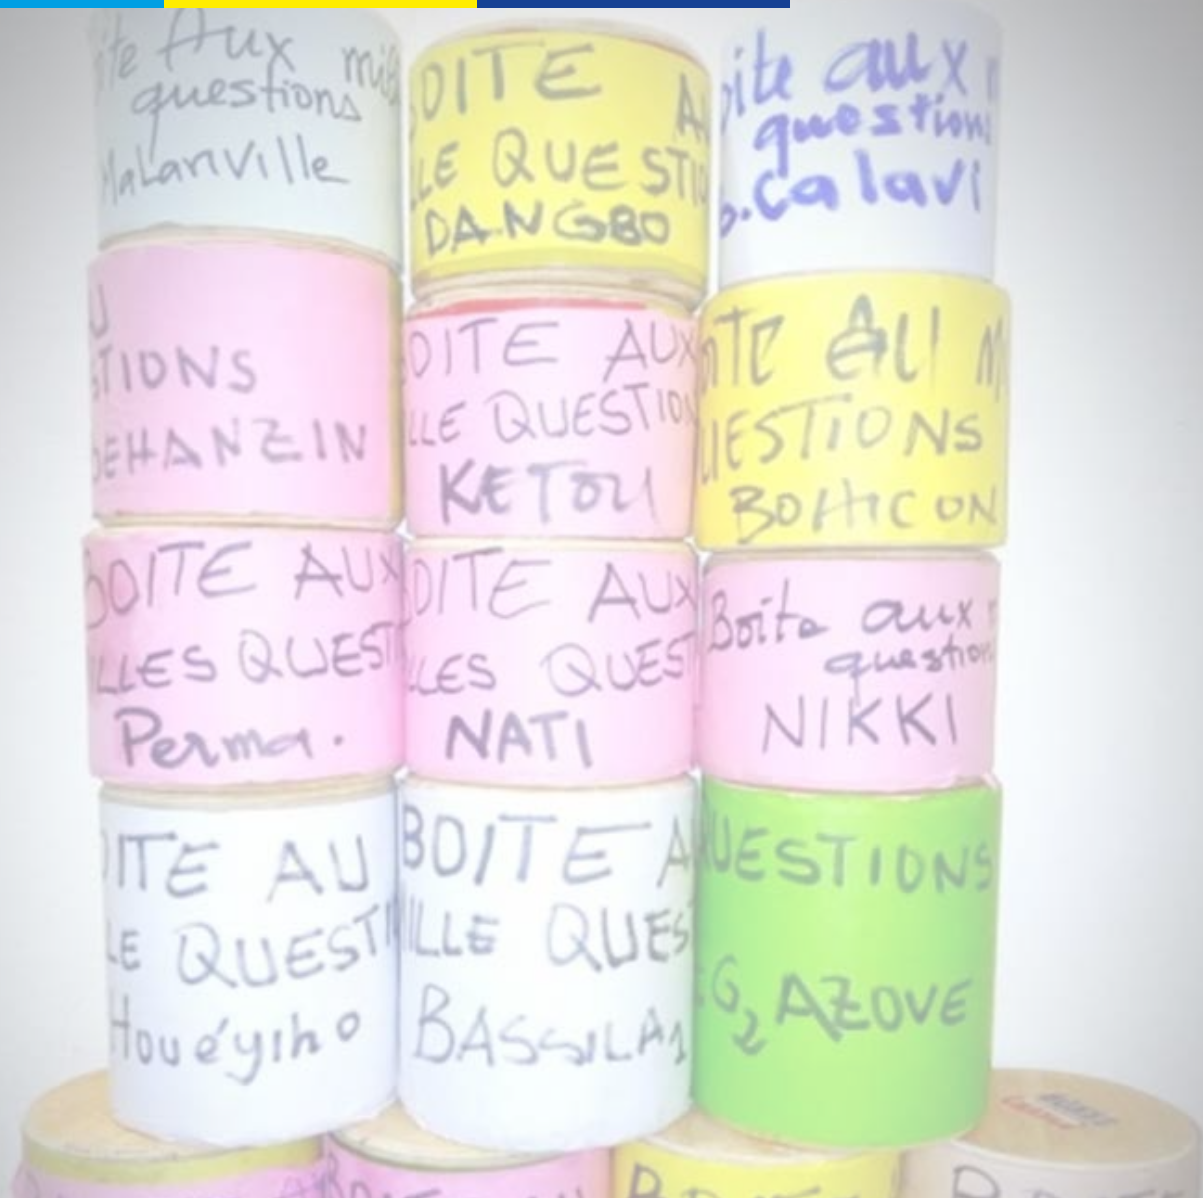 ite Aux mil
questions
Malanville
OITE A
LLE QUESTIO
DANGBO
oite aux
question
b.calavi
U
STIONS
BEHANZIN
OITE AUX
LLE QUESTION
KETOU
OITE AU M
UESTIONS
BOHICON
BOITE AUX
LLES QUEST
Perma.
OITE AUX
LLES QUEST
NATI
Boite aux
question
NIKKI
OITE AU
LE QUESTI
Houéyiho
BOITE A
ILLE QUES
BASSILA1
QUESTIONS
EG2 AZOVE